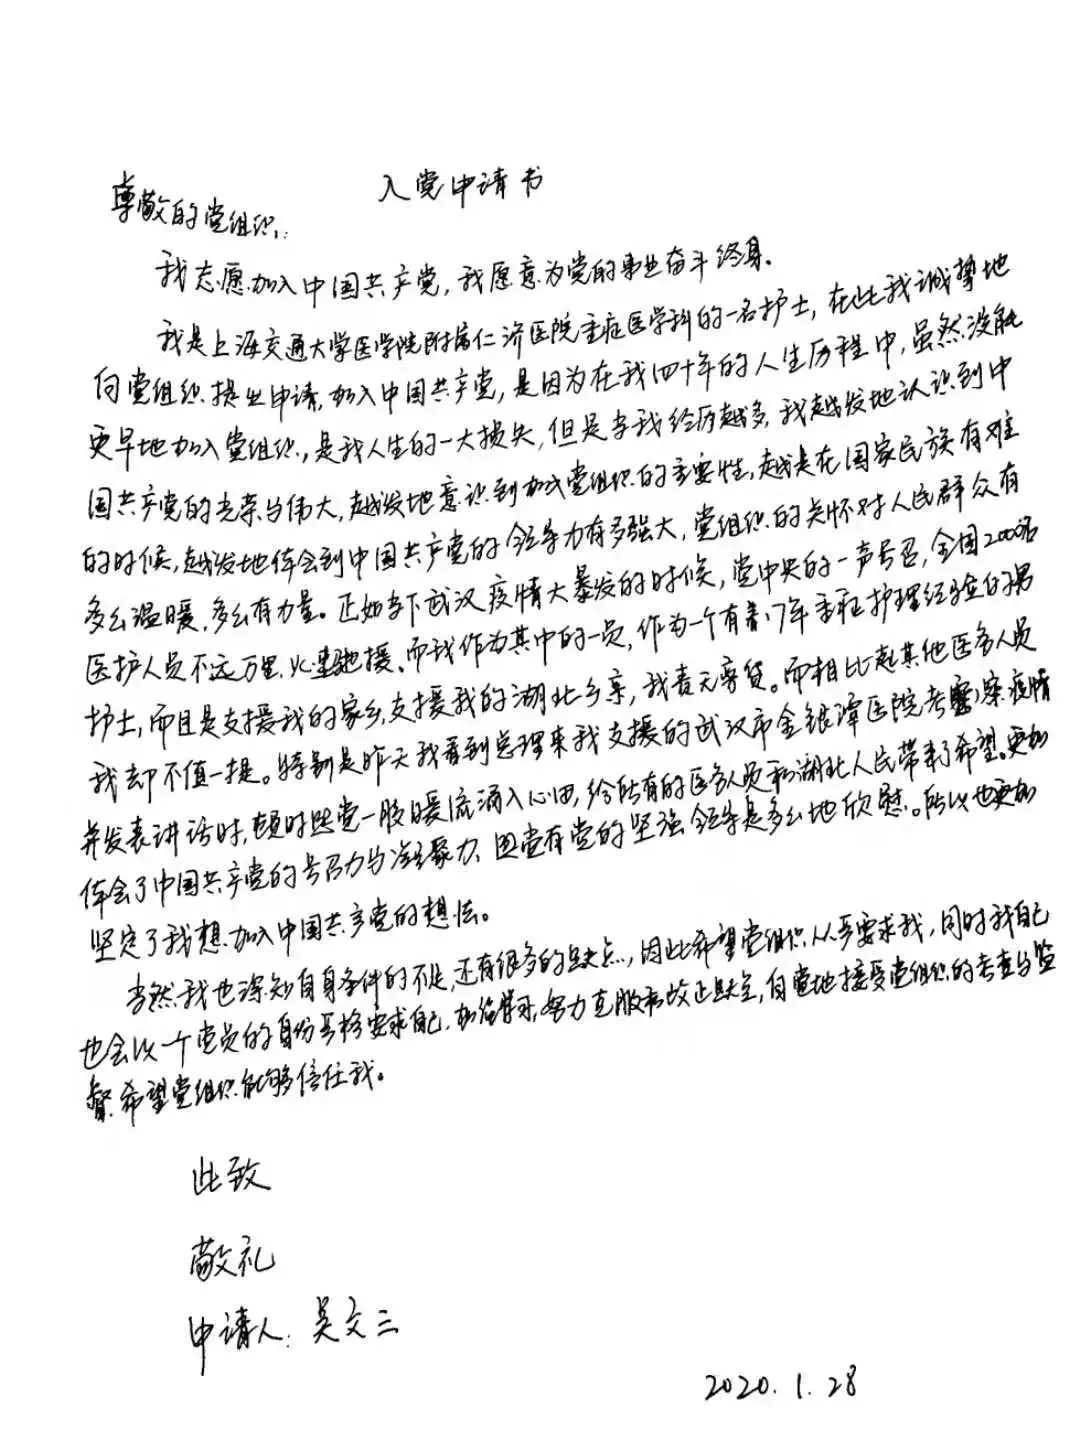 入党申请书
尊敬的党组织:
我志愿加入中国共产党,我愿意为党的事业奋斗终身。
我是上海交通大学医学院附属仁济医院重症医学科的一名护士,在此我诚挚地
向党组织提出申请,加入中国共产党,是因为在我四十年的人生历程中,虽然没能
更早地加入党组织,是我人生的一大损失,但是当我经历越多,我越发地认识到中
国共产党的光荣与伟大,越发地意识到加入党组织的重要性,越是在国家民族有难
的时候,越发地体会到中国共产党的领导力有多强大,党组织的关怀对人民群众有
多么温暖,多么有力量。正如当下武汉疫情大暴发的时候,党中央的一声号召,全国2000名
医护人员不远万里,火速驰援,而我作为其中的一员,作为一个有着17年重症护理经验的男
护士,而且是支援我的家乡,支援我的湖北乡亲,我责无旁贷。而相比起其他医务人员
我却不值一提。特别是昨天我看到总理来我支援的武汉市金银潭医院考察疫情
并发表讲话时,顿时觉一股暖流涌入心田,给所有的医务人员和湖北人民带来了希望。更加
体会了中国共产党的号召力与凝聚力,因党有党的坚强领导是多么地欣慰。所以也更加
坚定了我想加入中国共产党的想法。
当然我也深知自身条件的不足,还有很多的缺点,因此希望党组织从严要求我,同时我自己
也会以一个党员的身份严格要求自己,加倍学习,努力克服和改正缺点,自觉地接受党组织的考查与监
督.希望党组织能够信任我。
此致
敬礼
申请人:吴文三
2020.1.28